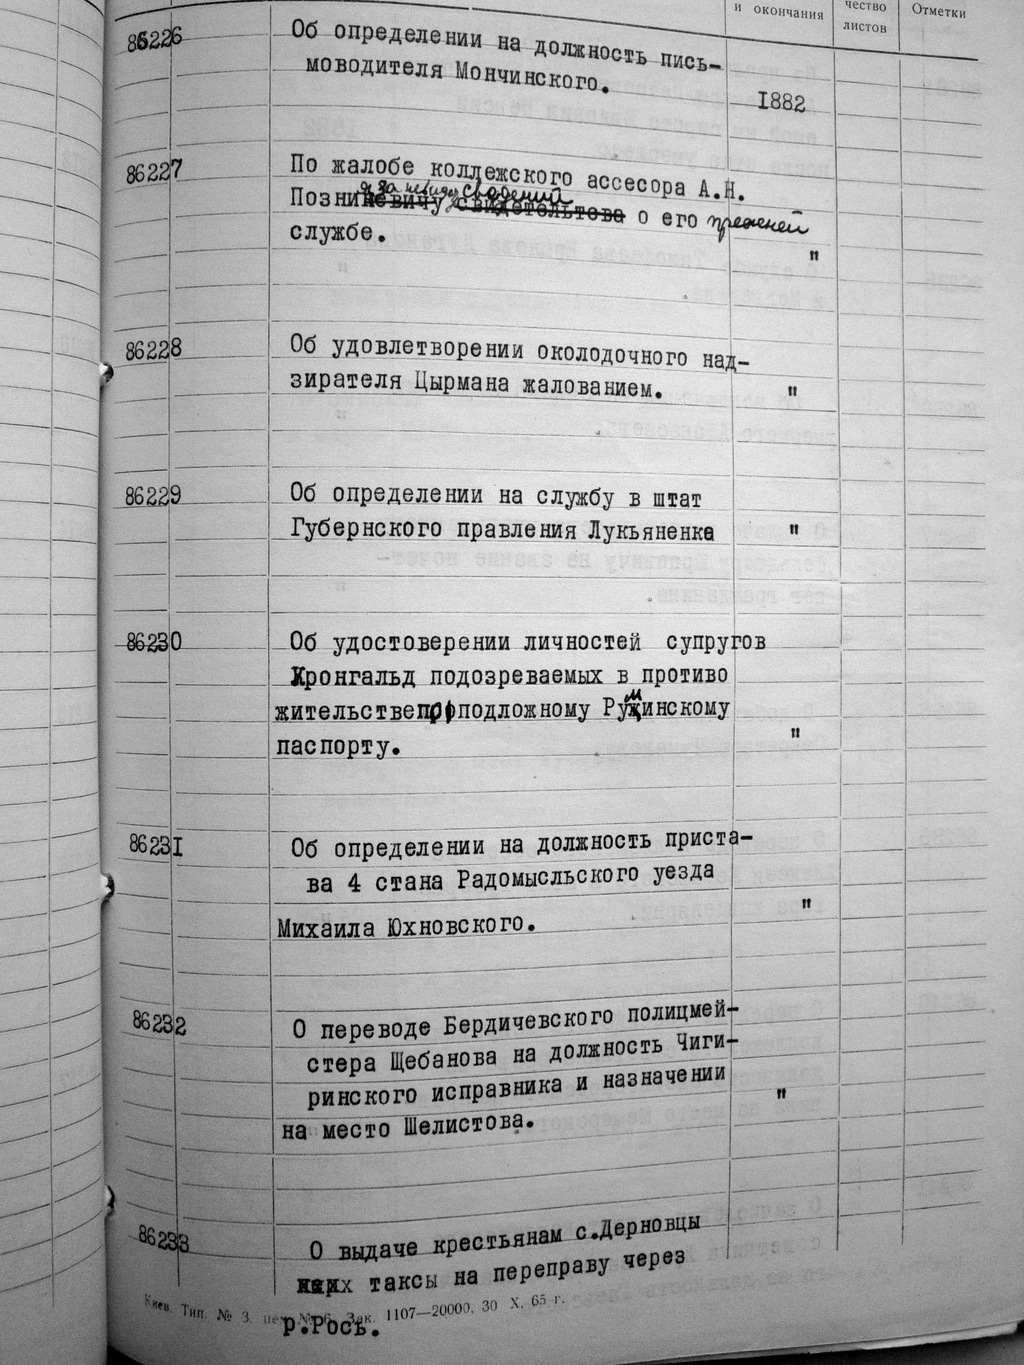 и окончания
чество
листов
Отметки
86226 Об определении на должность пись-
моводителя Мончинского.
1882
86227 По жалобе коллежского ассесора А.Н.
сведений
Позни о его прежней
службе. "
86228 Об удовлетворении околодочного над-
зирателя Цырмана жалованием. "
86229 Об определении на службу в штат
Губернского правления Лукьяненка "
86230 Об удостоверении личностей супругов
Кронгальд подозреваемых в противо
жительстве по подложному Румминскому
паспорту. "
86231 Об определении на должность приста-
ва 4 стана Радомысльского уезда
"
Михаила Юхновского.
86232 О переводе Бердичевского полицмей-
стера Щебанова на должность Чиги-
ринского исправника и назначении "
на место Шелистова.
86233 О выдаче крестьянам с.Дерновцы
таксы на переправу через
Киев. Тип. № 3, № 6. Зак. 1107—20000. 30 X. 65 г.
р.Рось.